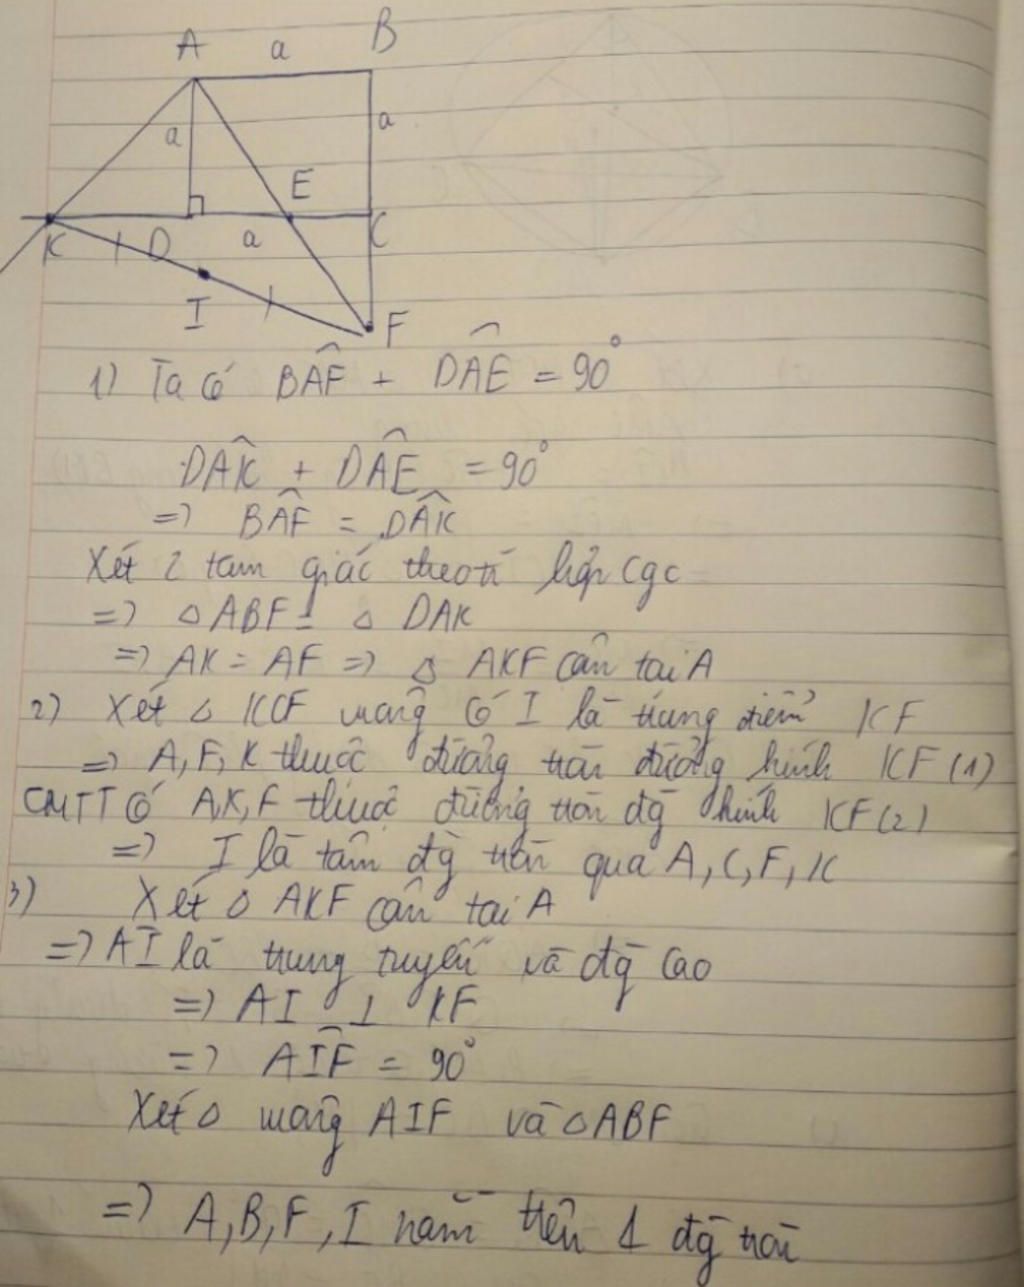 A a B
a a
E
K D a C
I
F
1) Ta có BÂF + DÂE = 90°
DÂK + DÂE = 90°
=> BÂF = DÂK
Xét 2 tam giác theo hợp cgc
=> △ABF = △ DAK
=> AK = AF => △ AKF cân tại A
2) Xét △ KCF vuông có I là trung điểm KF
=> A, F, K thuộc đường tròn đường kính KF (1)
CMTT có A, K, F thuộc đường tròn đg kính KF (2)
=> I là tâm đg tròn qua A, C, F, K
3) Xét △ AKF cân tại A
=> AI là trung tuyến và đg cao
=> AI ⊥ KF
=> AÎF = 90°
Xét △ vuông AIF và △ABF
=> A, B, F, I nằm trên 1 đg tròn